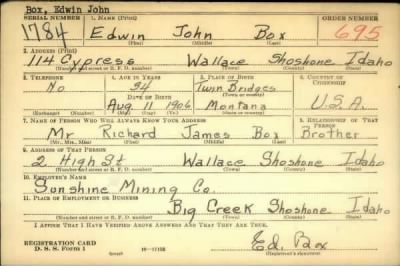 Box, Edwin John
SERIAL NUMBER 1. NAME (Print) ORDER NUMBER
1784 Edwin John Box 695
(First) (Middle) (Last)
2. ADDRESS (Print)
114 Cypress Wallace Shoshone Idaho
(Number and street or R. F. D. number) (Town) (County) (State)
3. TELEPHONE 4. AGE IN YEARS 5. PLACE OF BIRTH 6. COUNTRY OF CITIZENSHIP
No 34 Twin Bridges
DATE OF BIRTH (Town or county)
Aug. 11 1906 Montana U.S.A.
(Exchange) (No.) (Mo.) (Day) (Yr.) (State or country)
7. NAME OF PERSON WHO WILL ALWAYS KNOW YOUR ADDRESS 8. RELATIONSHIP OF THAT PERSON
Mr Richard James Box Brother
(Mr., Mrs., Miss) (First) (Middle) (Last)
9. ADDRESS OF THAT PERSON
2 High St Wallace Shoshone Idaho
(Number and street or R. F. D. number) (Town) (County) (State)
10. EMPLOYER'S NAME
Sunshine Mining Co.
11. PLACE OF EMPLOYMENT OR BUSINESS
Big Creek Shoshone Idaho
(Number and street or R. F. D. number) (Town) (County) (State)
I AFFIRM THAT I HAVE VERIFIED ABOVE ANSWERS AND THAT THEY ARE TRUE.
REGISTRATION CARD
D. S. S. Form 1
Ed. Box
(Registrant's signature)